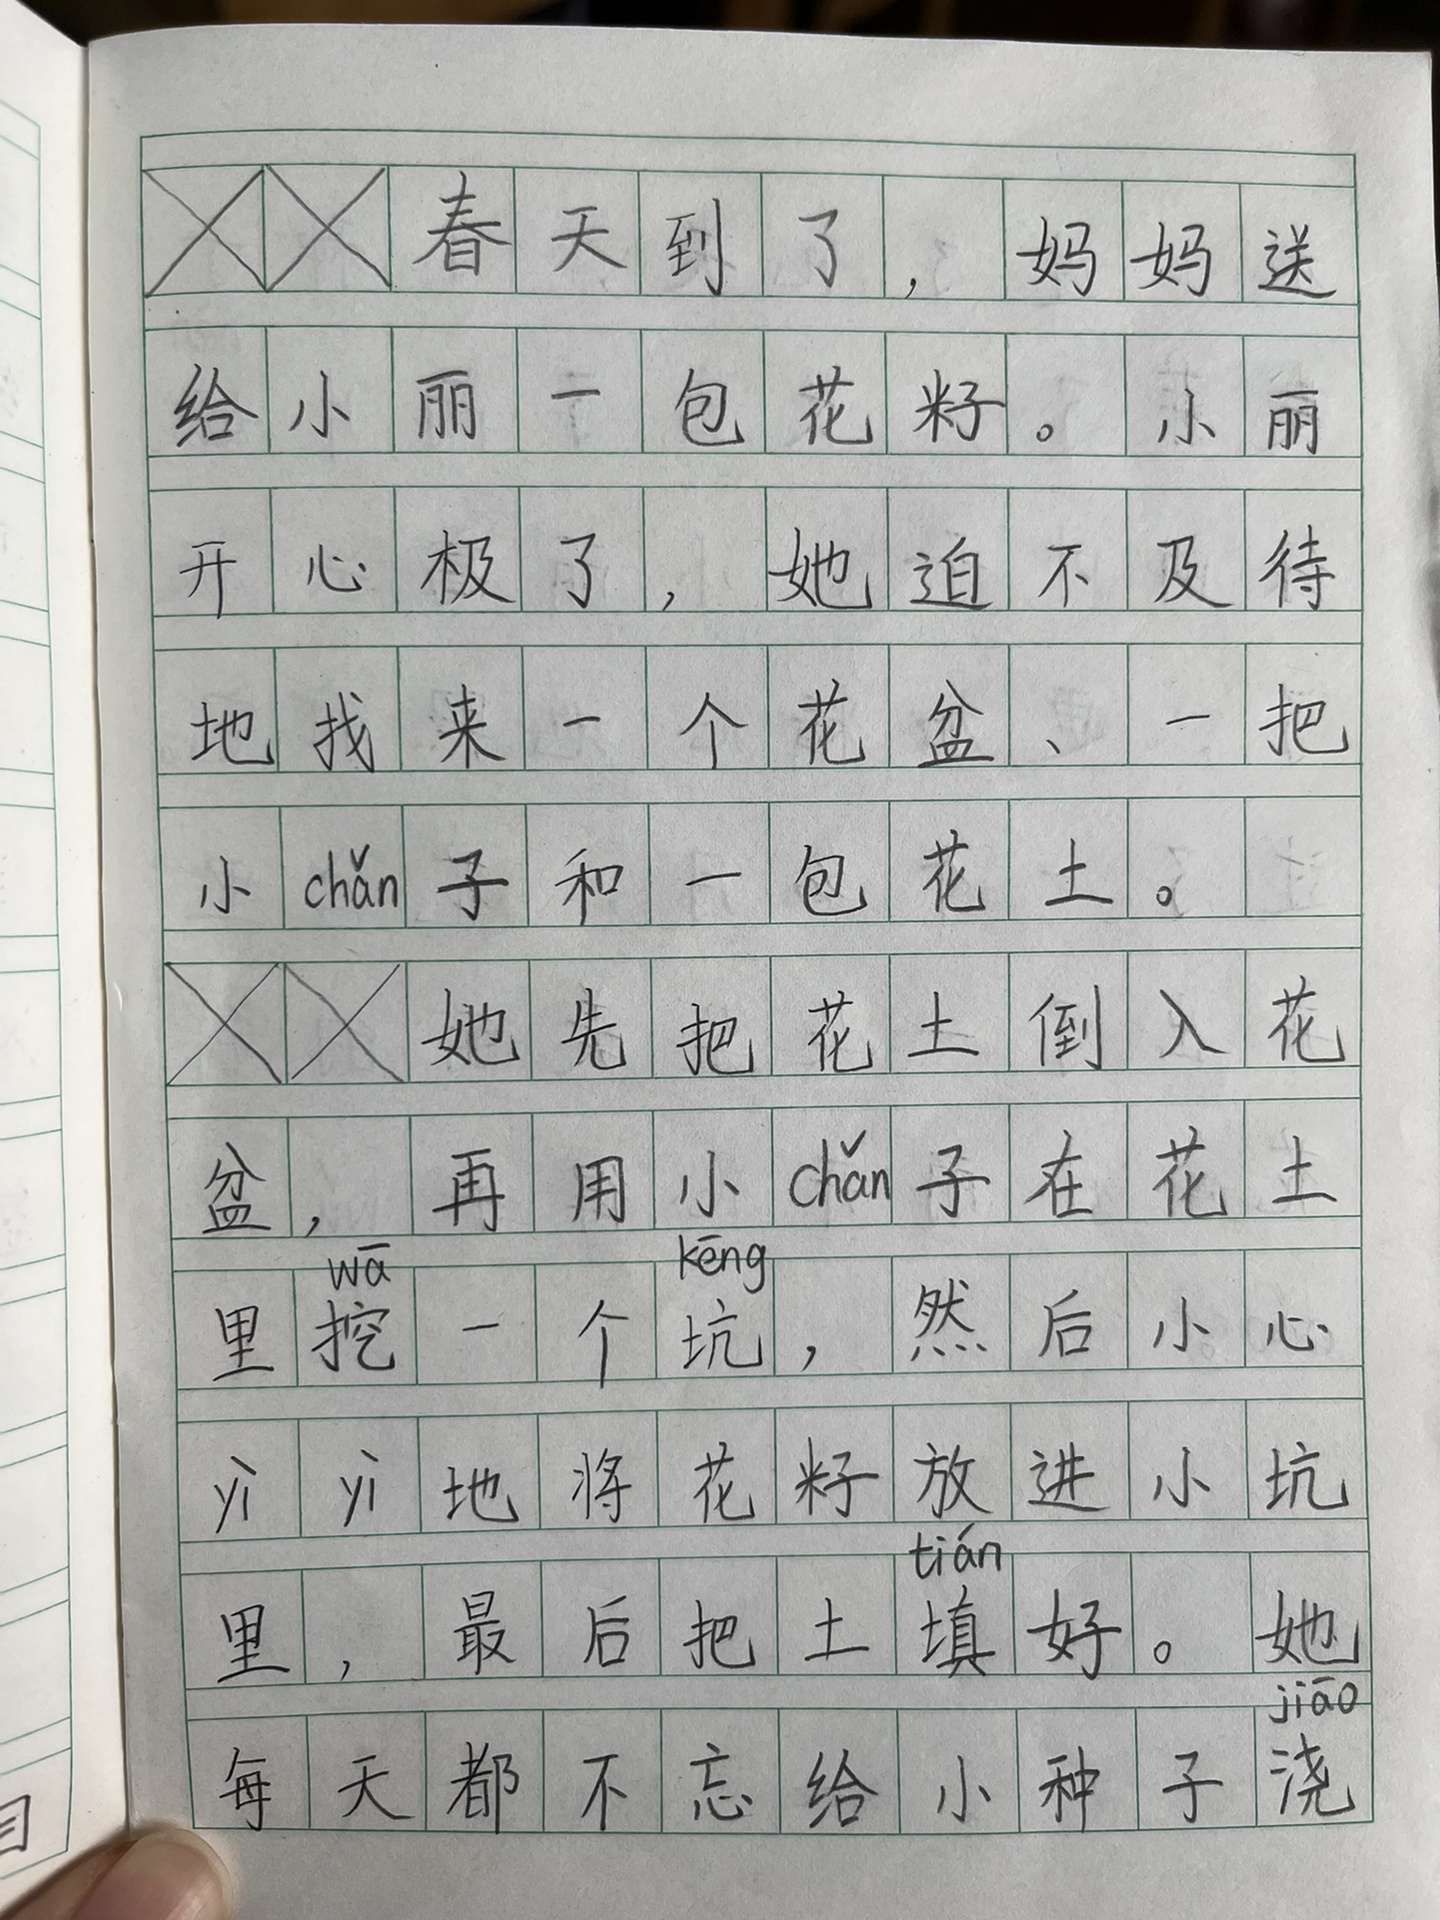 春天到了，妈妈送
给小丽一包花籽。小丽
开心极了，她迫不及待
地找来一个花盆、一把
小chǎn子和一包花土。
她先把花土倒入花
盆，再用小chǎn子在花土
wā kēng
里挖一个坑，然后小心
yìyì地将花籽放进小坑
tián
里，最后把土填好。她
jiāo
每天都不忘给小种子浇